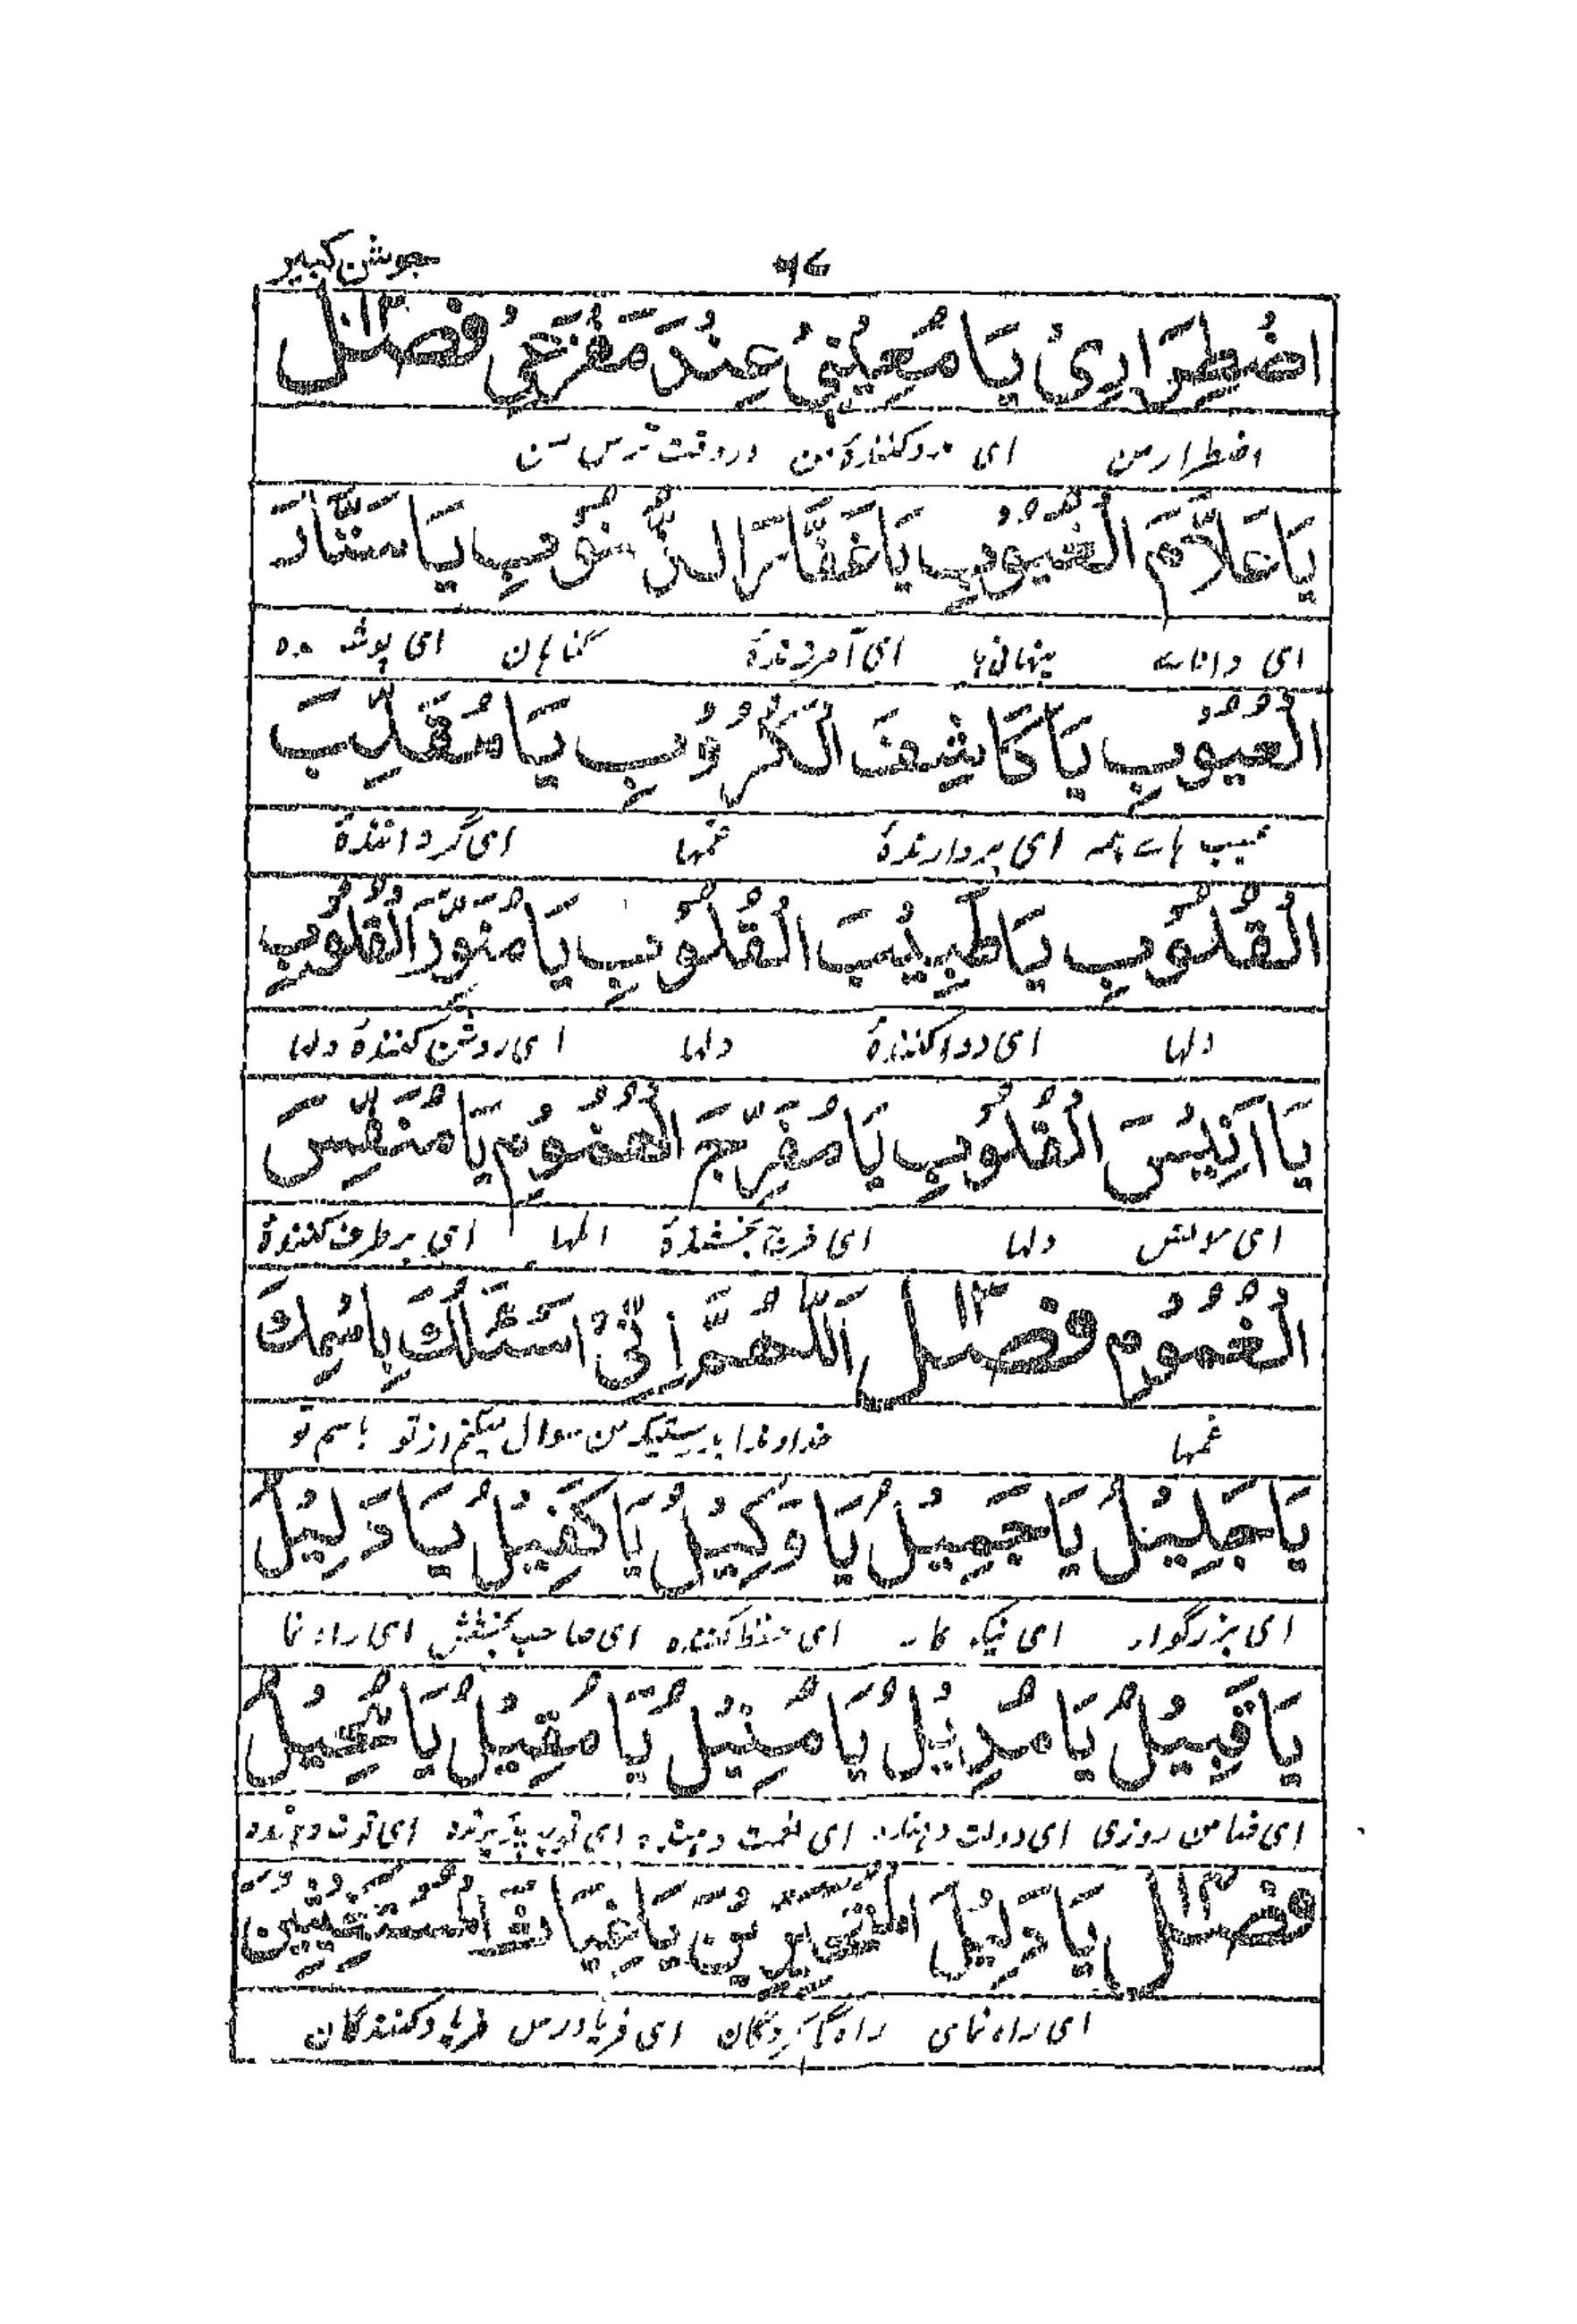 جوشن کبیر
اضْطِرَارِیْ یَا مُعِیْنِیْ عِنْدَ مَفْزَعِیْ فصل ۱۲
اضطرار من ای مدد کنندهٔ من در وقت ترس من
یَا عَلَّامَ الْغُیُوْبِ یَا غَفَّارَ الذُّنُوْبِ یَا سَتَّارَ
ای دانائے پنہانی ہا ای آمرزندهٔ گناہان ای پوشنده
الْعُیُوْبِ یَا کَاشِفَ الْکُرُوْبِ یَا مُقَلِّبَ
عیب ہائے ای بردارندهٔ غمہا ای گردانندهٔ
الْقُلُوْبِ یَا طَبِیْبَ الْقُلُوْبِ یَا مُنَوِّرَ الْقُلُوْبِ
دلہا ای دوا کنندهٔ دلہا ای روشن کنندهٔ دلہا
یَا اَنِیْسَ الْقُلُوْبِ یَا مُفَرِّجَ الْهُمُوْمِ یَا مُنَفِّسَ
ای مونس دلہا ای فرح بخشندهٔ المہا ای برطرف کنندهٔ
الْغُمُوْمِ فصل ۱۳ اَللّٰهُمَّ اِنِّیْ اَسْئَلُكَ بِاسْمِكَ
غمہا خداوندا بدرستیکہ من سوال میکنم از تو باسم تو
یَا جَلِیْلُ یَا جَمِیْلُ یَا وَکِیْلُ یَا کَفِیْلُ یَا دَلِیْلُ
ای بزرگوار ای نیکو کار ای حفظ کننده ای صاحب بخشش ای راه نما
یَا قَبِیْلُ یَا مُدِیْلُ یَا مُنِیْلُ یَا مُقِیْلُ یَا مُحِیْلُ
ای ضامن روزی ای دولت دہنده ای نعمت دہنده ای توبہ پذیرنده ای قوت دہنده
فصل ۱۴ یَا دَلِیْلَ الْمُتَحَیِّرِیْنَ یَا غِیَاثَ الْمُسْتَغِیْثِیْنَ
ای راه نمای راه گم کردگان ای فریادرس فریاد کنندگان